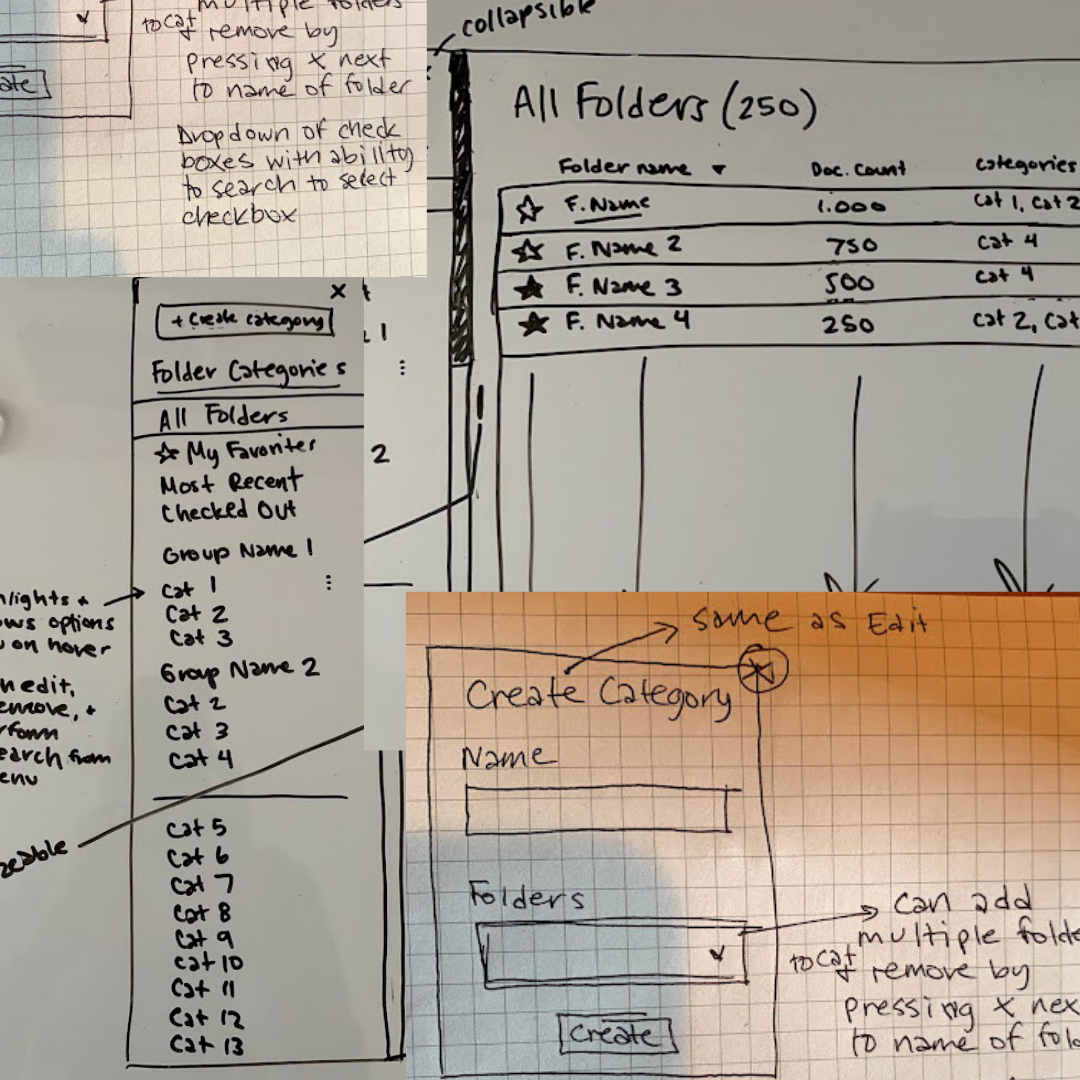 multiple folders
to cat + remove by
pressing x next
to name of folder
Dropdown of check
boxes with ability
to search to select
checkbox
collapsible
All Folders (250)
Folder name ▼ Doc. Count Categories
☆ F. Name 1.000 Cat 1, Cat 2
☆ F. Name 2 750 Cat 4
★ F. Name 3 500 Cat 4
★ F. Name 4 250 Cat 2, Cat
1
2
x
+ Create category
Folder Categories
All Folders
☆ My Favorites
Most Recent
Checked Out
Group Name 1
Cat 1
Cat 2
Cat 3
Group Name 2
Cat 2
Cat 3
Cat 4
Cat 5
Cat 6
Cat 7
Cat 8
Cat 9
Cat 10
Cat 11
Cat 12
Cat 13
options
on hover
edit,
+
from
Same as Edit
x
Create Category
Name
Folders
Create
can add
multiple
to cat + remove by
pressing x
to name of